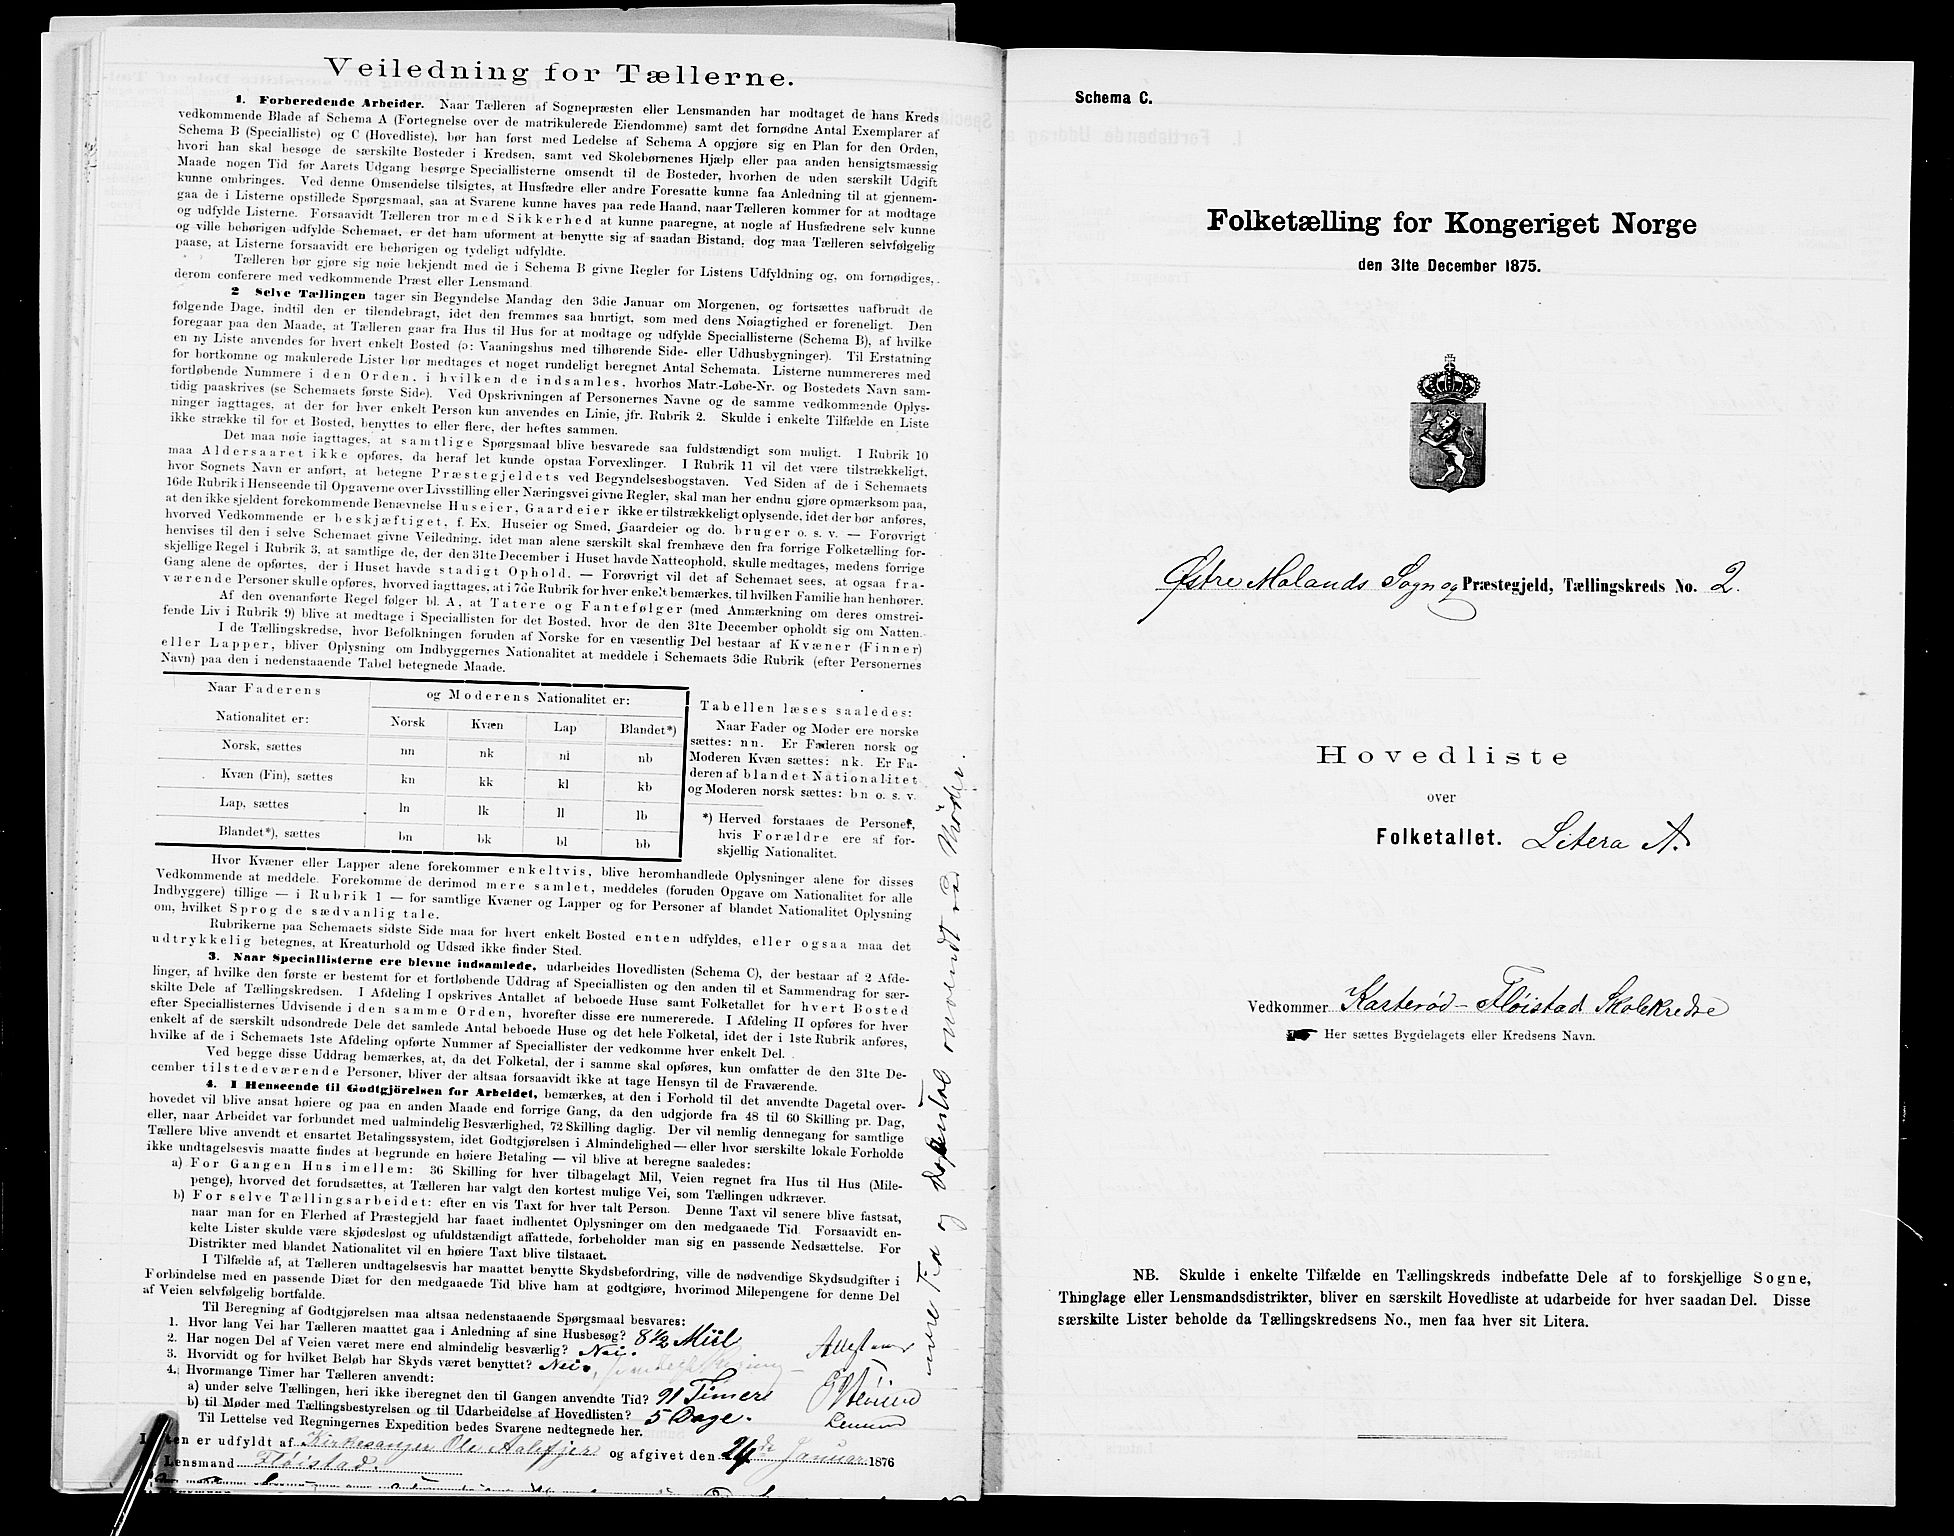 Veiledning for Tællerne.
1. Forberedende Arbeider. Naar Tælleren af Sognepræsten eller Lensmanden har modtaget de hans Kreds
vedkommende Blade af Schema A (Fortegnelse over de matrikulerede Eiendomme) samt det fornødne Antal Exemplarer af
Schema B (Specialliste) og C (Hovedliste), bør han først med Ledelse af Schema A opgjøre sig en Plan for den Orden,
hvori han skal besøge de særskilte Bosteder i Kredsen, samt ved Skolebørnenes Hjælp eller paa anden hensigtsmæssig
Maade nogen Tid før Aarets Udgang besørge Speciallisterne omsendt til de Bosteder, hvorhen de uden særskilt Udgift
kunne ombringes. Ved denne Omsendelse tilsigtes, at Husfædre eller andre Foresatte kunne faa Anledning til at gjennem-
gaa de i Listerne opstillede Spørgsmaal, saa at Svarene kunne haves paa rede Haand, naar Tælleren kommer for at modtage
og udfylde Listerne. Forsaavidt Tælleren tror med Sikkerhed at kunne paaregne, at nogle af Husfædrene selv kunne
og ville behørigen udfylde Schemaet, er det ham uforment at benytte sig af saadan Bistand, dog maa Tælleren selvfølgelig
paase, at Listerne forsaavidt ere behørigen og tydeligt udfyldte.
Tælleren bør gjøre sig nøie bekjendt med de i Schema B givne Regler for Listens Udfyldning og, om fornødiges,
derom conferere med vedkommende Præst eller Lensmand.
2 Selve Tællingen tager sin Begyndelse Mandag den 3die Januar om Morgenen, og fortsættes uafbrudt de
følgende Dage, indtil den er tilendebragt, idet den fremmes saa hurtigt, som med dens Nøiagtighed er foreneligt. Den
foregaar paa den Maade, at Tælleren gaar fra Hus til Hus for at modtage og udfylde Speciallisterne (Schema B), af hvilke
en ny Liste anvendes for hvert enkelt Bosted (ɔ: Vaaningshus med tilhørende Side- eller Udhusbygninger). Til Erstatning
for bortkomne og makulerede Lister bør medtages et noget rundeligt beregnet Antal Schemata. Listerne nummereres med
fortløbende Nummere i den Orden, i hvilken de indsamles, hvorhos Matr.-Løbe-Nr. og Bostedets Navn sam-
tidig paaskrives (se Schemaets første Side). Ved Opskrivningen af Personernes Navne og de samme vedkommende Oplys-
ninger iagttages, at der for hver enkelt Person kun anvendes en Linie, jfr. Rubrik 2. Skulde i enkelte Tilfælde en Liste
ikke strække til for et Bosted, benyttes to eller flere, der heftes sammen.
Det maa nøie iagttages, at samtlige Spørgsmaal blive besvarede saa fuldstændigt som muligt. I Rubrik 10
maa Aldersaaret ikke opføres, da heraf let kunde opstaa Forvexlinger. I Rubrik 11 vil det være tilstrækkeligt,
hvor Sognets Navn er anført, at betegne Præstegjeldets ved Begyndelsesbogstaven. Ved Siden af de i Schemaets
16de Rubrik i Henseende til Opgaverne over Livsstilling eller Næringsvei givne Regler, skal man her endnu gjøre opmærksom paa,
at den ikke sjeldent forekommende Benævnelse Huseier, Gaardeier ikke er tilstrækkeligt oplysende, idet der bør anføres,
hvorved Vedkommende er beskjæftiget, f. Ex. Huseier og Smed, Gaardeier og do. bruger o. s. v. — Forøvrigt
henvises til den i selve Schemaet givne Veiledning, idet man alene særskilt skal fremhæve den fra forrige Folketælling for-
skjellige Regel i Rubrik 3, at samtlige de, der den 31te December i Huset havde Natteophold, skulle medtages, medens forrige
Gang alene de opførtes, der i Huset havde stadigt Ophold. — Forøvrigt vil det af Schemaet sees, at ogsaa fra-
værende Personer skulle opføres, hvorved iagttages, at i 7de Rubrik for hver enkelt bemærkes, til hvilken Familie han henhører.
Af den ovenanførte Regel følger bl. A, at Tatere og Fantefølger (med Anmærkning om deres omstrei-
fende Liv i Rubrik 9) blive at medtage i Speciallisten for det Bosted, hvor de den 31te December opholdt sig om Natten.
I de Tællingskredse, hvor Befolkningen foruden af Norske for en væsentlig Del bestaar af Kvæner (Finner)
eller Lapper, bliver Oplysning om Indbyggernes Nationalitet at meddele i Schemaets 3die Rubrik (efter Personernes
Navn) paa den i nedenstaaende Tabel betegnede Maade.
Naar Faderens Nationalitet er: og Moderens Nationalitet er:
Norsk Kvæn Lap Blandet*)
Norsk, sættes nn nk nl nb
Kvæn (Fin), sættes kn kk kl kb
Lap, sættes ln lk ll lb
Blandet*), sættes bn bk bl bb
Tabellen læses saaledes:
Naar Fader og Moder ere norske
sættes: nn. Er Faderen norsk og
Moderen Kvæn sættes: nk. Er Fa-
deren af blandet Nationalitet
og Moderen norsk sættes: bn o. s. v.
*) Herved forstaaes de Personer,
hvis Forældre ere af for-
skjellig Nationalitet.
Hvor Kvæner eller Lapper alene forekommer enkeltvis, blive heromhandlede Oplysninger alene for disses
Vedkommende at meddele. Forekomme de derimod mere samlet, meddeles (foruden Opgave om Nationalitet for alle
Indbyggere) tillige — i Rubrik 1 — for samtlige Kvæner og Lapper og for Personer af blandet Nationalitet Oplysning
om, hvilket Sprog de sædvanlig tale.
Rubrikerne paa Schemaets sidste Side maa for hvert enkelt Bosted enten udfyldes, eller ogsaa maa det
udtrykkelig betegnes, at Kreaturhold og Udsæd ikke finder Sted.
3. Naar Speciallisterne ere blevne indsamlede, udarbeides Hovedlisten (Schema C), der bestaar af 2 Afde-
linger, af hvilke den første er bestemt for et fortløbende Uddrag af Speciallisten og den anden til et Sammendrag for sær-
skilte Dele af Tællingskredsen. I Afdeling I opskrives Antallet af beboede Huse samt Folketallet for hvert Bosted
efter Speciallisternes Udvisende i den samme Orden, hvorefter disse ere numererede. I Afdeling II opføres for hver
enkelt af de særskilt udsondrede Dele det samlede Antal beboede Huse og det hele Folketal, idet der i 1ste Rubrik anføres,
hvilke af de i Schemaets 1ste Afdeling opførte Nummer af Speciallister der vedkomme hver enkelt Del.
Ved begge disse Uddrag bemærkes, at, da det Folketal, der i samme skal opføres, kun omfatter de den 31te De-
cember tilstedeværende Personer, bliver der altsaa forsaavidt ikke at tage Hensyn til de Fraværende.
4. I Henseende til Godtgjörelsen for Arbeidet, bemærkes, at den i Forhold til det anvendte Dagetal over-
hovedet vil blive ansat høiere og paa en anden Maade end forrige Gang, da den udgjorde fra 48 til 60 Skilling pr. Dag,
eller, naar Arbeidet var forbundet med ualmindelig Besværlighed, 72 Skilling daglig. Der vil nemlig dennegang for samtlige
Tællere blive anvendt et ensartet Betalingssystem, idet Godtgjørelsen i Almindelighed — eller hvor særskilte lokale Forholde
ikke undtagelsesvis maatte findes at begrunde en høiere Betaling — vil blive at beregne saaledes:
a) For Gangen Hus imellem: 36 Skilling for hver tilbagelagt Mil, Veien regnet fra Hus til Hus (Mile-
penge), hvorved det forudsættes, at Tælleren har valgt den kortest mulige Vei, som Tællingen udkræver.
b) For selve Tællingsarbeidet: efter en vis Taxt for hver talt Person. Denne Taxt vil senere blive fastsat,
naar man for en Flerhed af Præstegjeld har faaet indhentet Oplysninger om den medgaaede Tid. Forsaavidt en-
kelte Lister skulde være skjødesløst og ufuldstændigt affattede, forbeholder man sig en passende Nedsættelse. For
Distrikter med blandet Nationalitet vil en høiere Taxt blive tilstaaet.
I Tilfælde af, at Tælleren undtagelsesvis har maattet benytte Skydsbefordring, ville de nødvendige Skydsudgifter i
Forbindelse med en passende Diæt for den medgaaede Tid blive ham at godtgjøre, hvorimod Milepengene for denne Del
af Veien selvfølgelig bortfalde.
Til Beregning af Godtgjørelsen maa altsaa nedenstaaende Spørgsmaal besvares:
1. Hvor lang Vei har Tælleren maattet gaa i Anledning af sine Husbesøg? 8 1/2 Miil
2. Har nogen Del af Veien været mere end almindelig besværlig? Nei.
3. Hvorvidt og for hvilket Beløb har Skyds været benyttet? Nei.
4. Hvormange Timer har Tælleren anvendt:
a) under selve Tællingen, heri ikke iberegnet den til Gangen anvendte Tid? 91 Timer
b) til Møder med Tællingsbestyrelsen og til Udarbeidelse af Hovedlisten? 5 Dage.
Til Lettelse ved Regningernes Expedition bedes Svarene nedtegnede her.
en er udfyldt af Kirkesanger Ole Aalefjer og afgivet den 24de Januar 1876
Lensmand Fløistad.
Schema C.
Folketælling for Kongeriget Norge
den 31te December 1875.
Østre Molands Sogn og Præstegjeld, Tællingskreds No. 2.
Hovedliste
over
Folketallet. Litera A.
Vedkommer Karterød - Fløistad Skolekreds
Her sættes Bygdelagets eller Kredsens Navn.
NB. Skulde i enkelte Tilfælde en Tællingskreds indbefatte Dele af to forskjellige Sogne,
Thinglage eller Lensmandsdistrikter, bliver en særskilt Hovedliste at udarbeide for hver saadan Del. Disse
særskilte Lister beholde da Tællingskredsens No., men faa hver sit Litera.